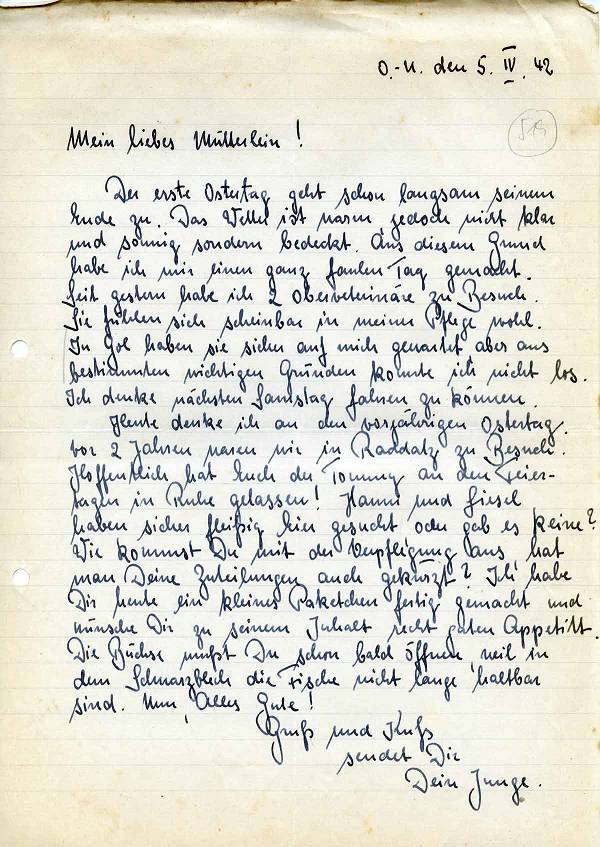 O.-U. den 5. IV. 42
515
Mein liebes Mütterlein!
Der erste Ostertag geht schon langsam seinem
Ende zu. Das Wetter ist warm, jedoch nicht klar
und sonnig sondern bedeckt. Aus diesem Grund
habe ich mir einen ganz faulen Tag gemacht.
Seit gestern habe ich 2 Oberveterinäre zu Besuch.
Sie fühlen sich scheinbar in meiner Pflege wohl.
In Gol haben sie sicher auf mich gewartet, aber aus
bestimmten wichtigen Gründen konnte ich nicht los.
Ich denke nächsten Samstag fahren zu können.
Heute denke ich an den vorjährigen Ostertag.
vor 2 Jahren waren wir in Raddatz zu Besuch.
Hoffentlich hat Euch der Tommy an den Feier-
tagen in Ruhe gelassen! Hanni und Gisel
haben sicher fleißig Eier gesucht oder gab es keine?
Wie kommst Du mit der Verpflegung aus, hat
man Deine Zuteilungen auch gekürzt? Ich habe
Dir heute ein kleines Paketchen fertig gemacht und
wünsche Dir zu seinem Inhalt recht guten Appetitt.
Die Büchse mußt Du schon bald öffnen, weil in
dem Schwarzblech die Fische nicht lange haltbar
sind. Nun, Alles Gute!
Gruß und Kuß
sendet Dir
Dein Junge.